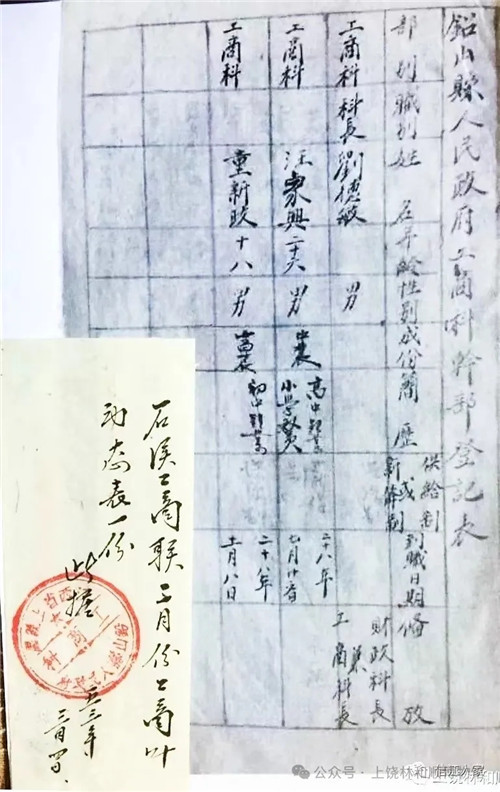 鉛山縣人民政府工商科幹部登記表
部別職別姓名年齡性別成份簡歷供給制或薪俸制到職日期備攷
工商科科長劉德敏男高中畢業二十八年財政科長兼工商科長
工商科汪東興二十六男中農小學畢業七月廿六日
工商科童新政十八男富農初中畢業二十八年十一月八日
石溪工商聯二月份工商叶
动态表一份
此據
五三年
三月四日
工商科
公众号·上饶林和顺